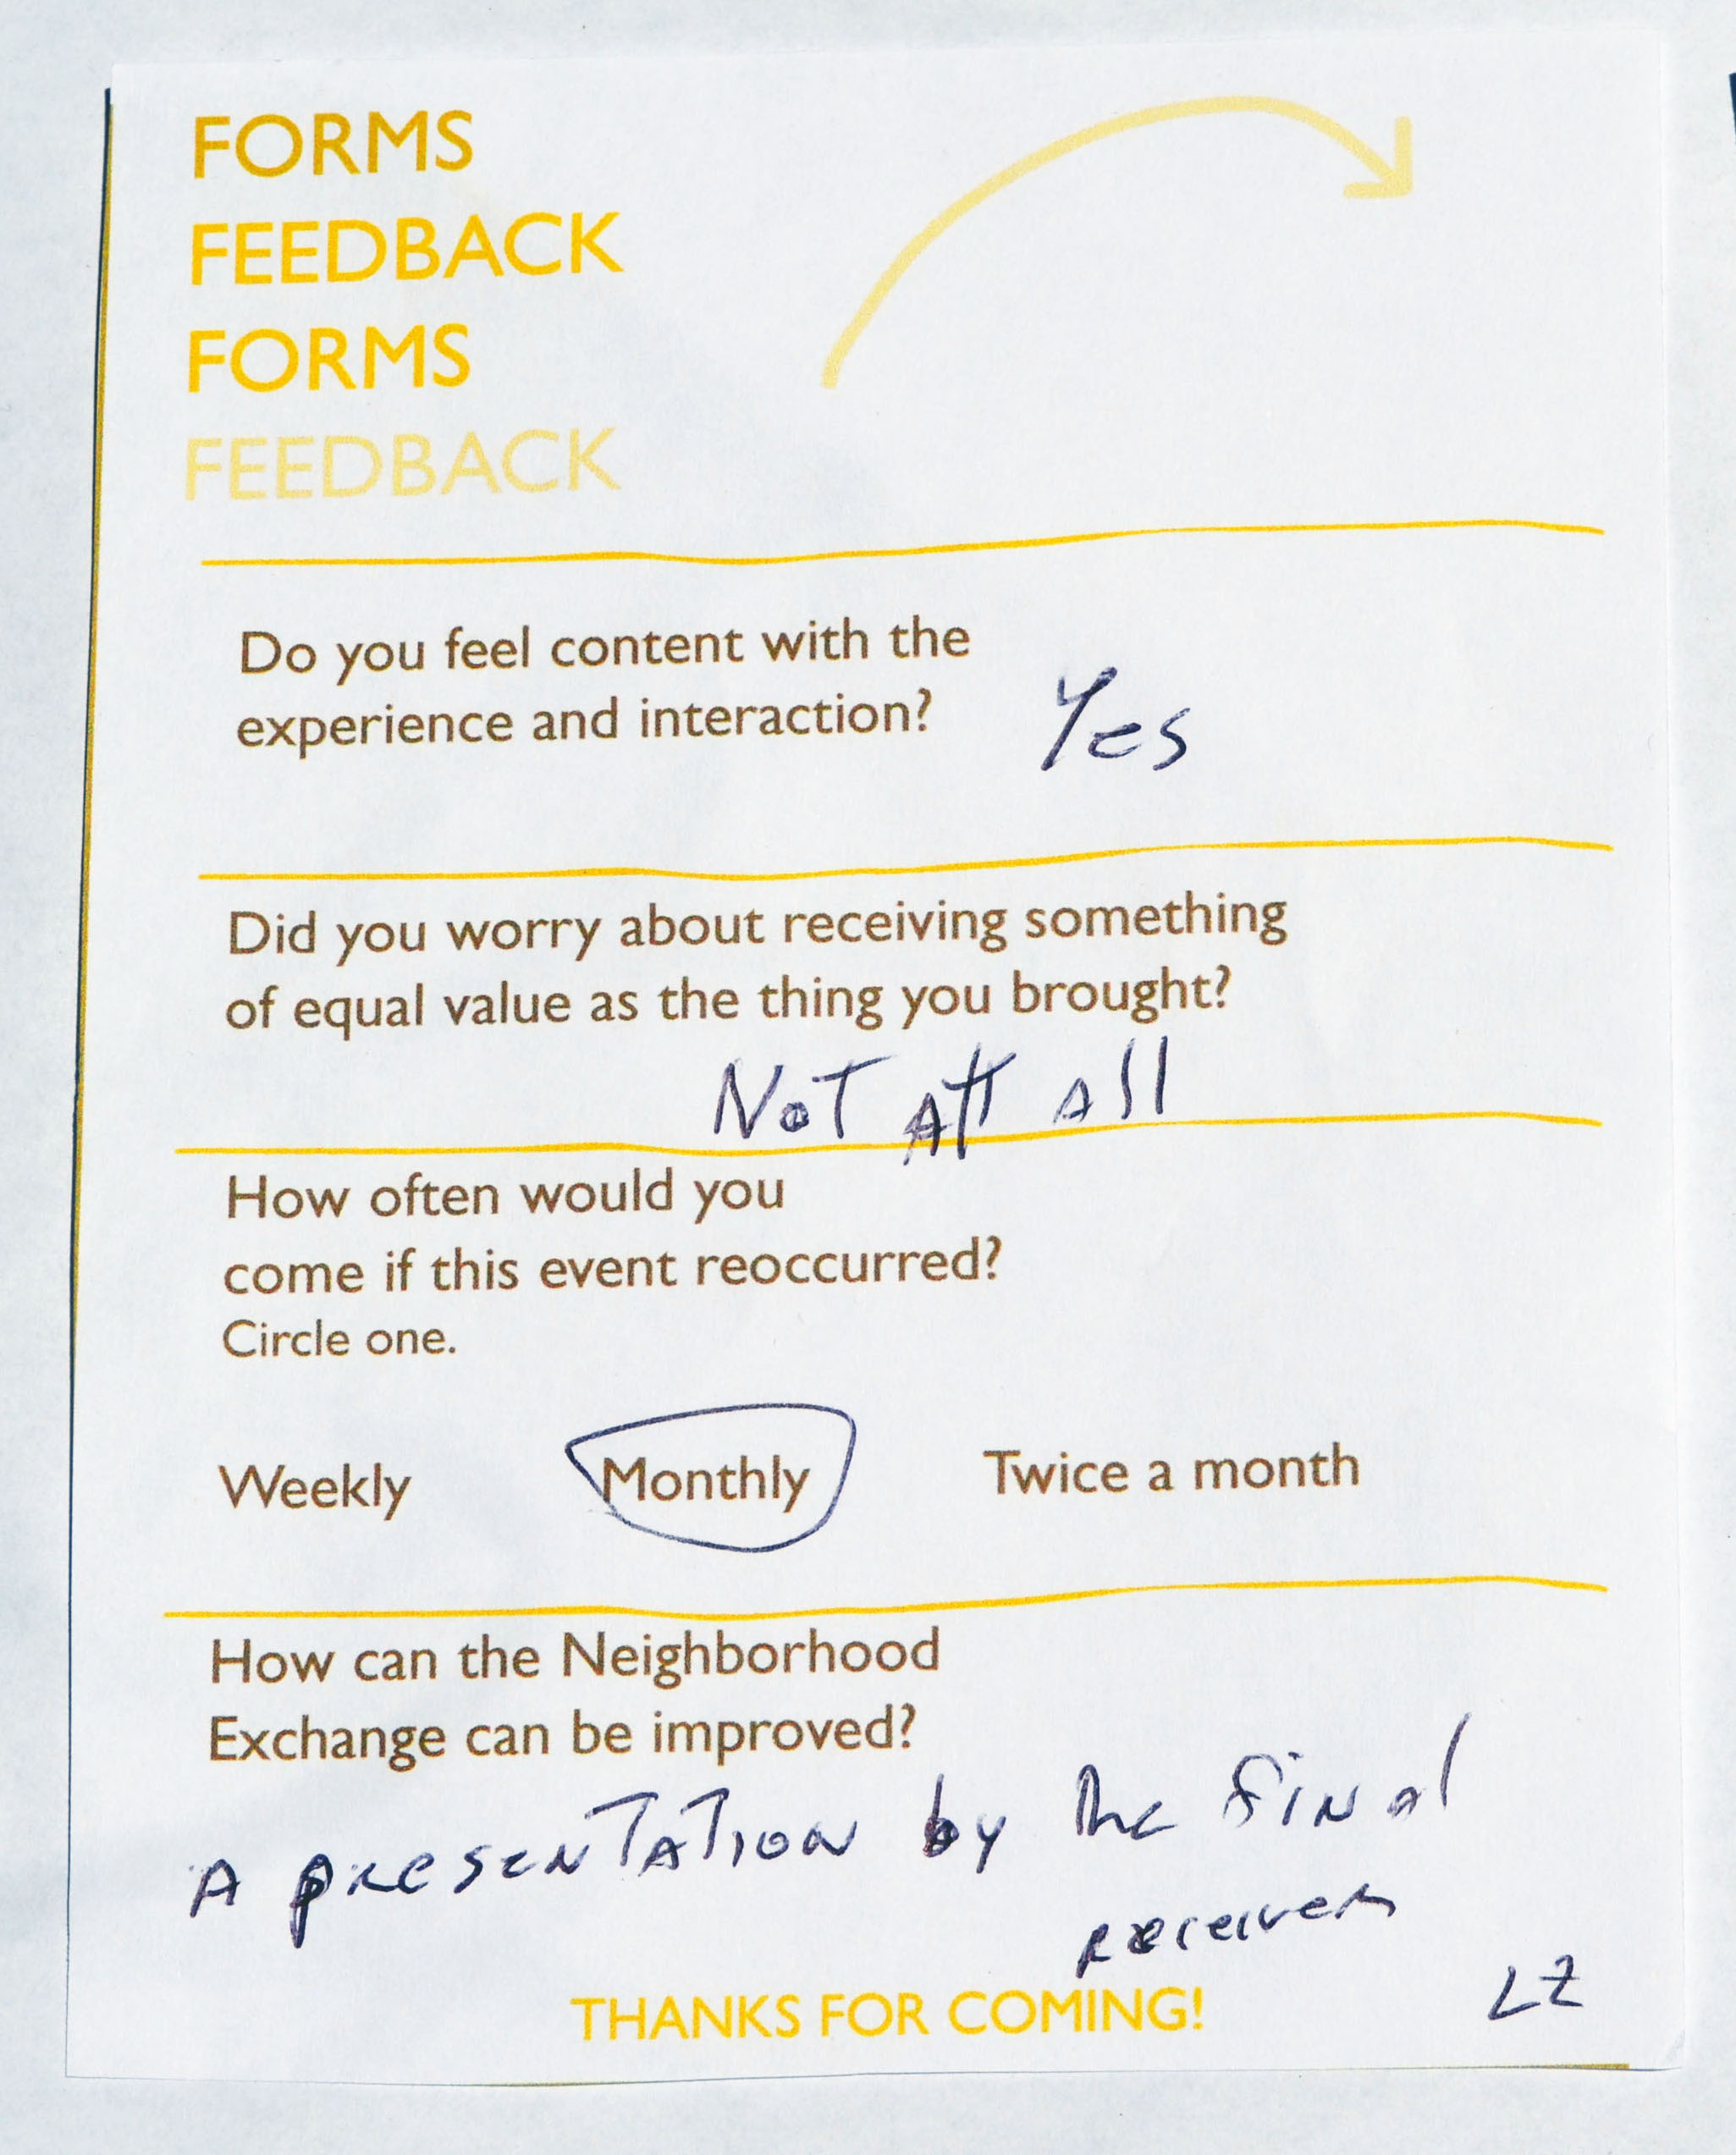 FORMS
FEEDBACK
FORMS
FEEDBACK
Do you feel content with the
experience and interaction?
Yes
Did you worry about receiving something
of equal value as the thing you brought?
Not Att All
How often would you
come if this event reoccurred?
Circle one.
Weekly Monthly Twice a month
How can the Neighborhood
Exchange can be improved?
A presentation by the final
receiver
LZ
THANKS FOR COMING!